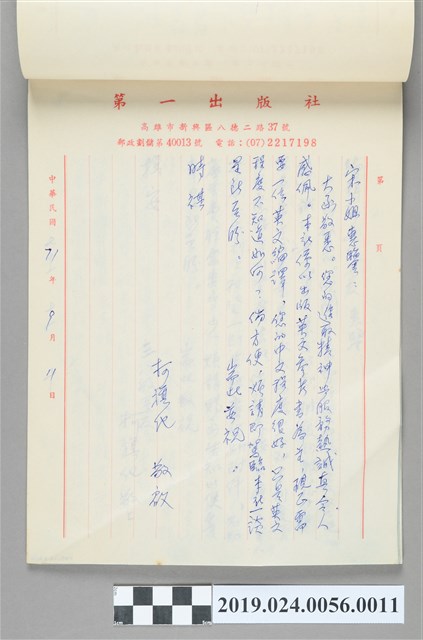 第一出版社
高雄市新興區八德二路37號
郵政劃撥第40013號 電話：(07)2217198
第 頁
宋小姐惠鑒：
大函敬悉。您的進取精神與服務熱誠真令人
感佩。本社係以出版英文參考書為主，現正需
要一位英文編譯，您的中文程度很好，只是英文
程度不知道如何？倘方便，煩請即駕臨本社一談
是所至盼。 耑此 敬祝
時祺
柯旗化 敬啟
中華民國 71 年 9 月 11 日
2019.024.0056.0011